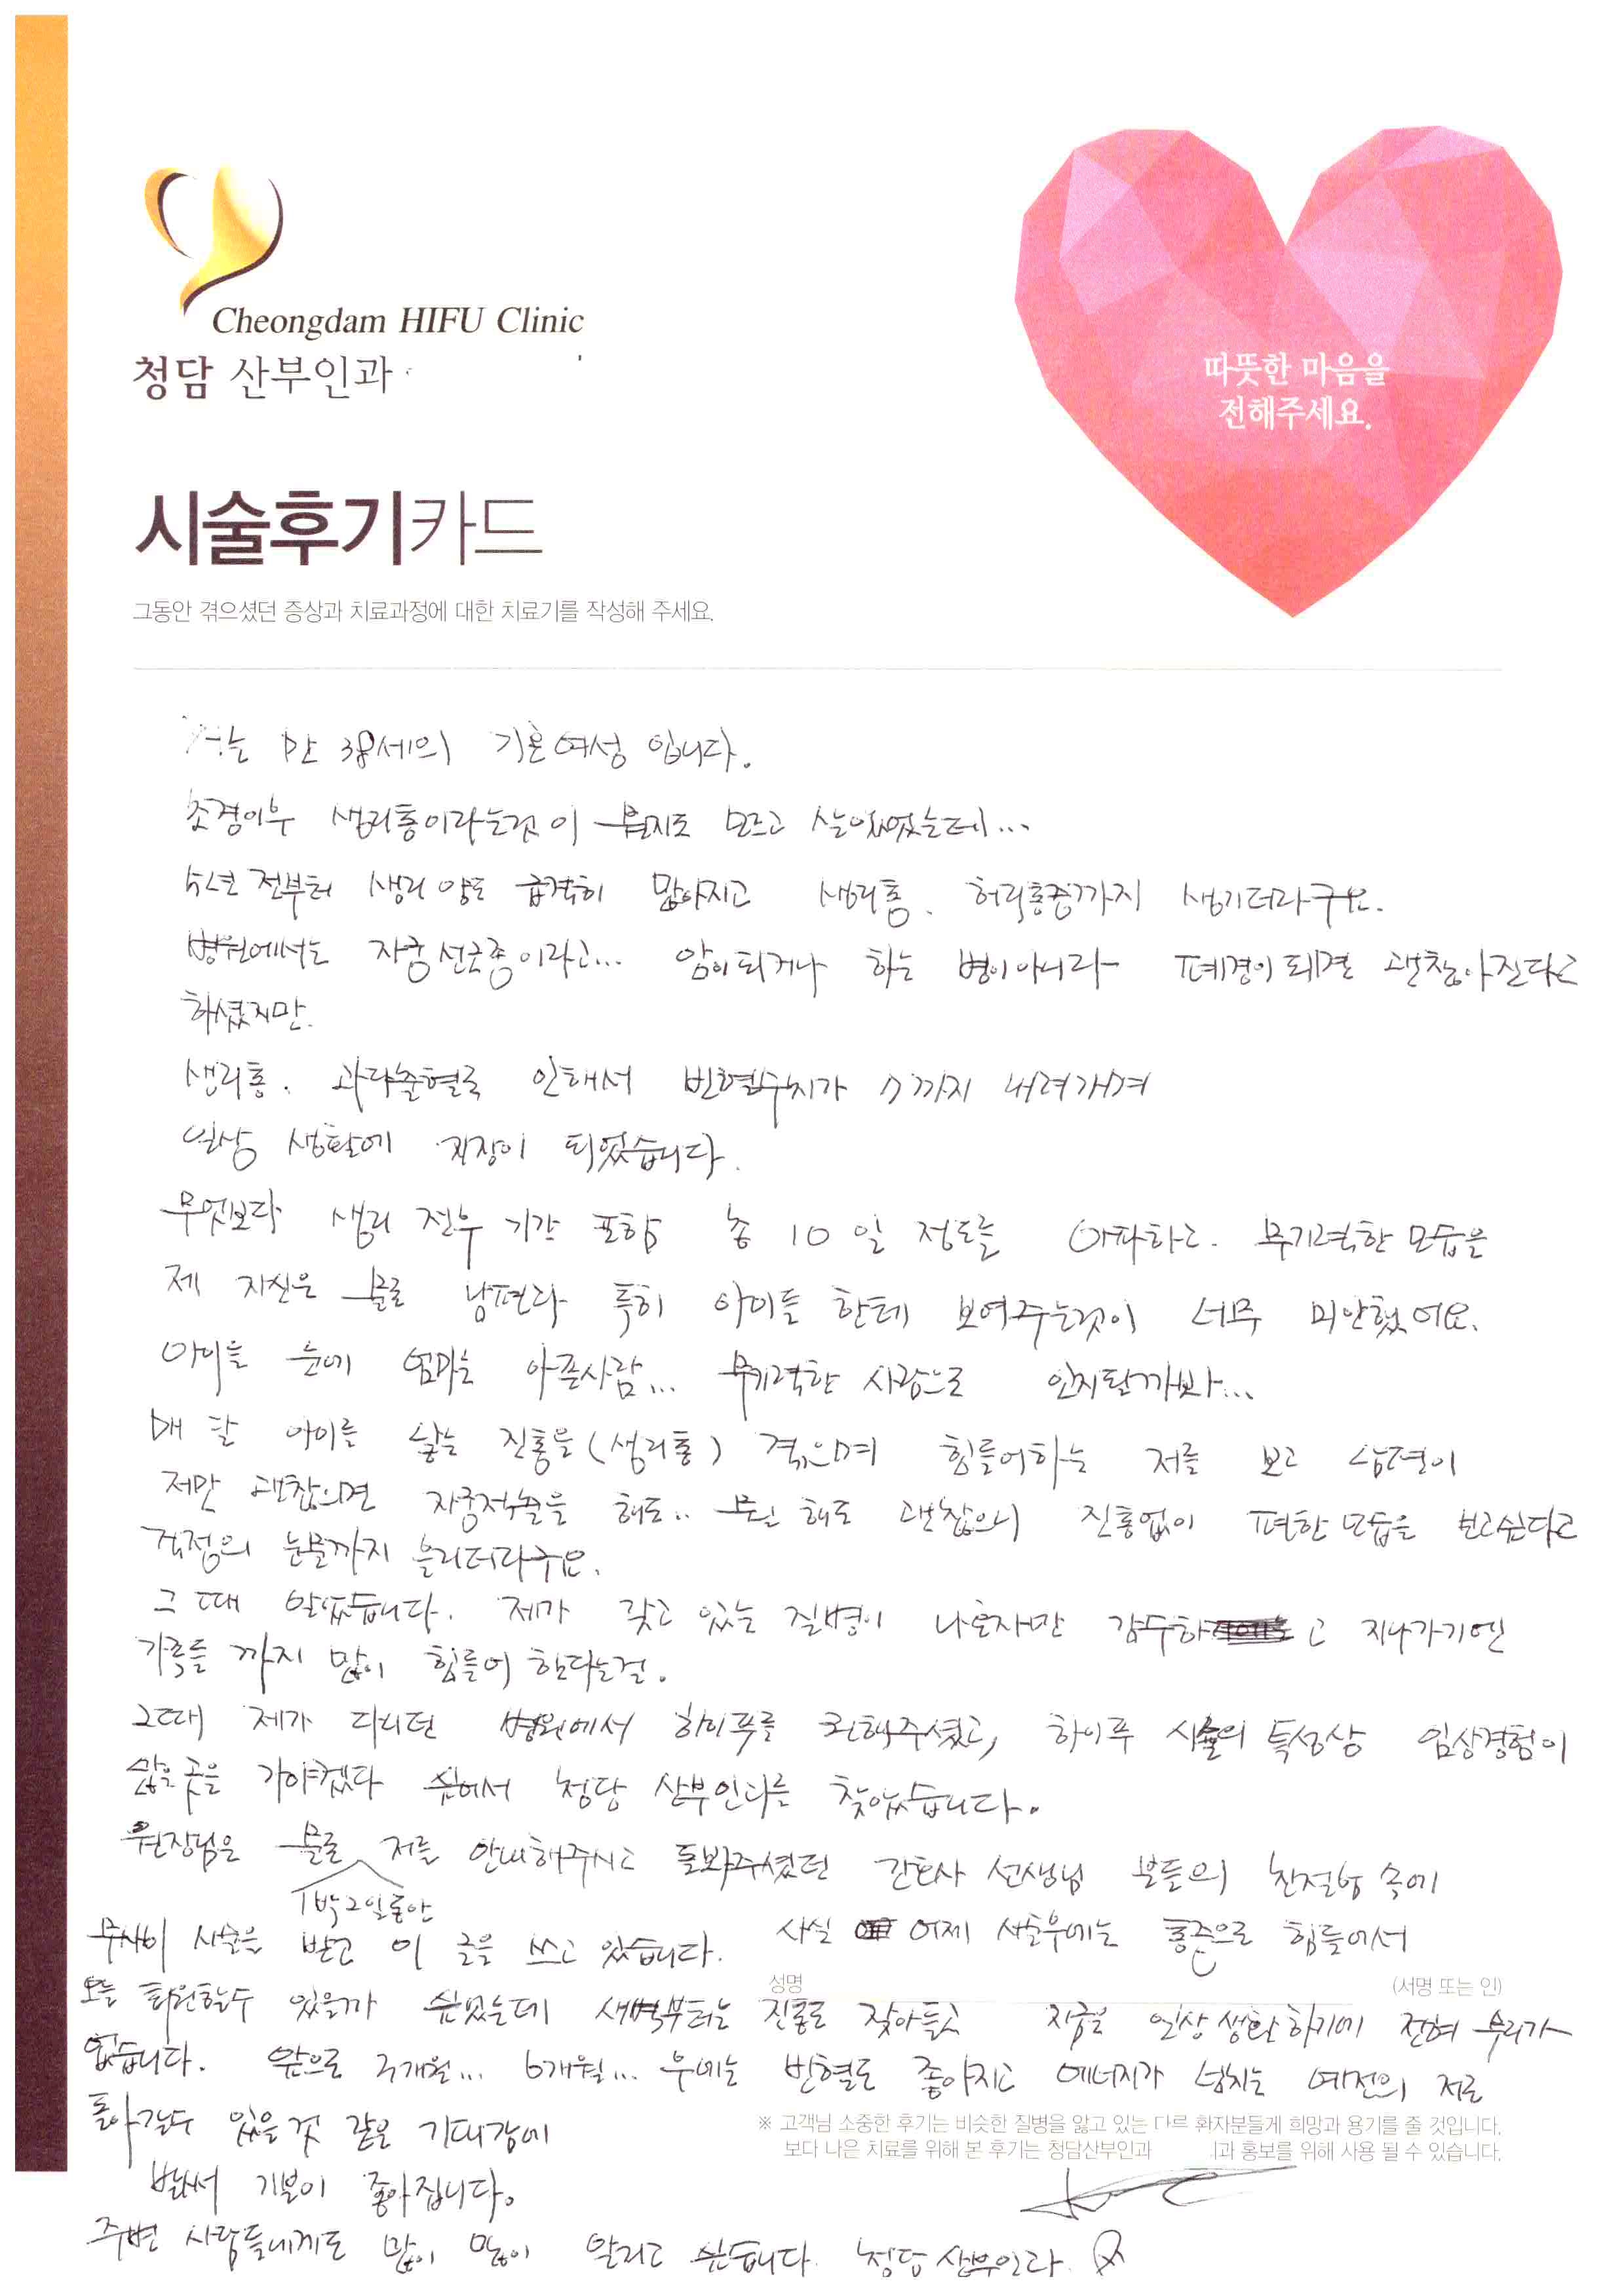 Cheongdam HIFU Clinic
청담 산부인과
따뜻한 마음을
전해주세요.
시술후기카드
그동안 겪으셨던 증상과 치료과정에 대한 치료기를 작성해 주세요.
저는 만 38세의 기혼여성 입니다.
초경이후 생리통이라는것이 뭔지도 모르고 살아왔었는데...
5년 전부터 생리 양도 급격히 많아지고 생리통. 허리통증까지 생기더라구요.
병원에서는 자궁선근종이라고... 암이되거나 하는 병이아니라 폐경이 되면 괜찮아진다고
하셨지만.
생리통. 과다출혈로 인해서 빈혈수치가 7까지 내려가며
일상 생활에 지장이 되었습니다.
무엇보다 생리 전후 기간 포함 총 10일 정도를 아파하고. 무기력한 모습을
제 자신은 물론 남편과 특히 아이들 한테 보여주는것이 너무 미안했어요.
아이들 눈에 엄마는 아픈사람... 무기력한 사람으로 인지될까봐...
매 달 아이를 낳는 진통을(생리통) 겪으며 힘들어하는 저를 보고 남편이
저만 괜찮으면 자궁적출을 해도.. 뭔 해도 괜찮으니 진통없이 편한 모습을 보고싶다고
걱정의 눈물까지 흘리더라구요.
그 때 알았습니다. 제가 갖고 있는 질병이 나혼자만 감수하고 지나가기엔
가족들 까지 많이 힘들어 한다는걸.
그때 제가 다니던 병원에서 하이푸를 권해주셨고, 하이푸 시술의 특성상 임상경험이
많은 곳을 가야겠다 싶어서 청담 산부인과를 찾았습니다.
원장님은 물론 저를 안내해주시고 돌봐주셨던 간호사 선생님 분들의 친절함 속에
1박2일동안
무사히 시술을 받고 이 글을 쓰고 있습니다. 사실 어제 시술후에는 통증으로 힘들어서
성명 (서명 또는 인)
오늘 퇴원할수 있을까 싶었는데 새벽부터는 진통도 잦아들고 지금은 일상생활하기에 전혀 무리가
없습니다. 앞으로 3개월... 6개월... 후에는 빈혈도 좋아지고 에너지가 넘치는 예전의 저로
돌아갈수 있을 것 같은 기대감에
※ 고객님 소중한 후기는 비슷한 질병을 앓고 있는 다른 환자분들게 희망과 용기를 줄 것입니다.
보다 나은 치료를 위해 본 후기는 청담산부인과 과 홍보를 위해 사용 될 수 있습니다.
벌써 기분이 좋아집니다.
주변 사람들에게도 많이 많이 알리고 싶습니다. 청담산부인과.